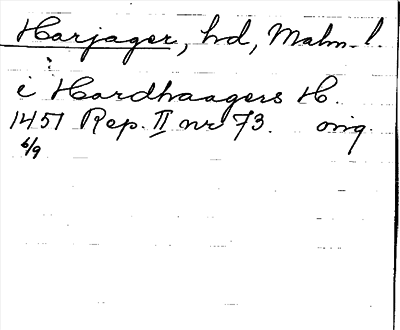 Harjager, hd, Malm. l.
i Hardhaagers H.
1451 Rep. II nr 73. orig.
6/9